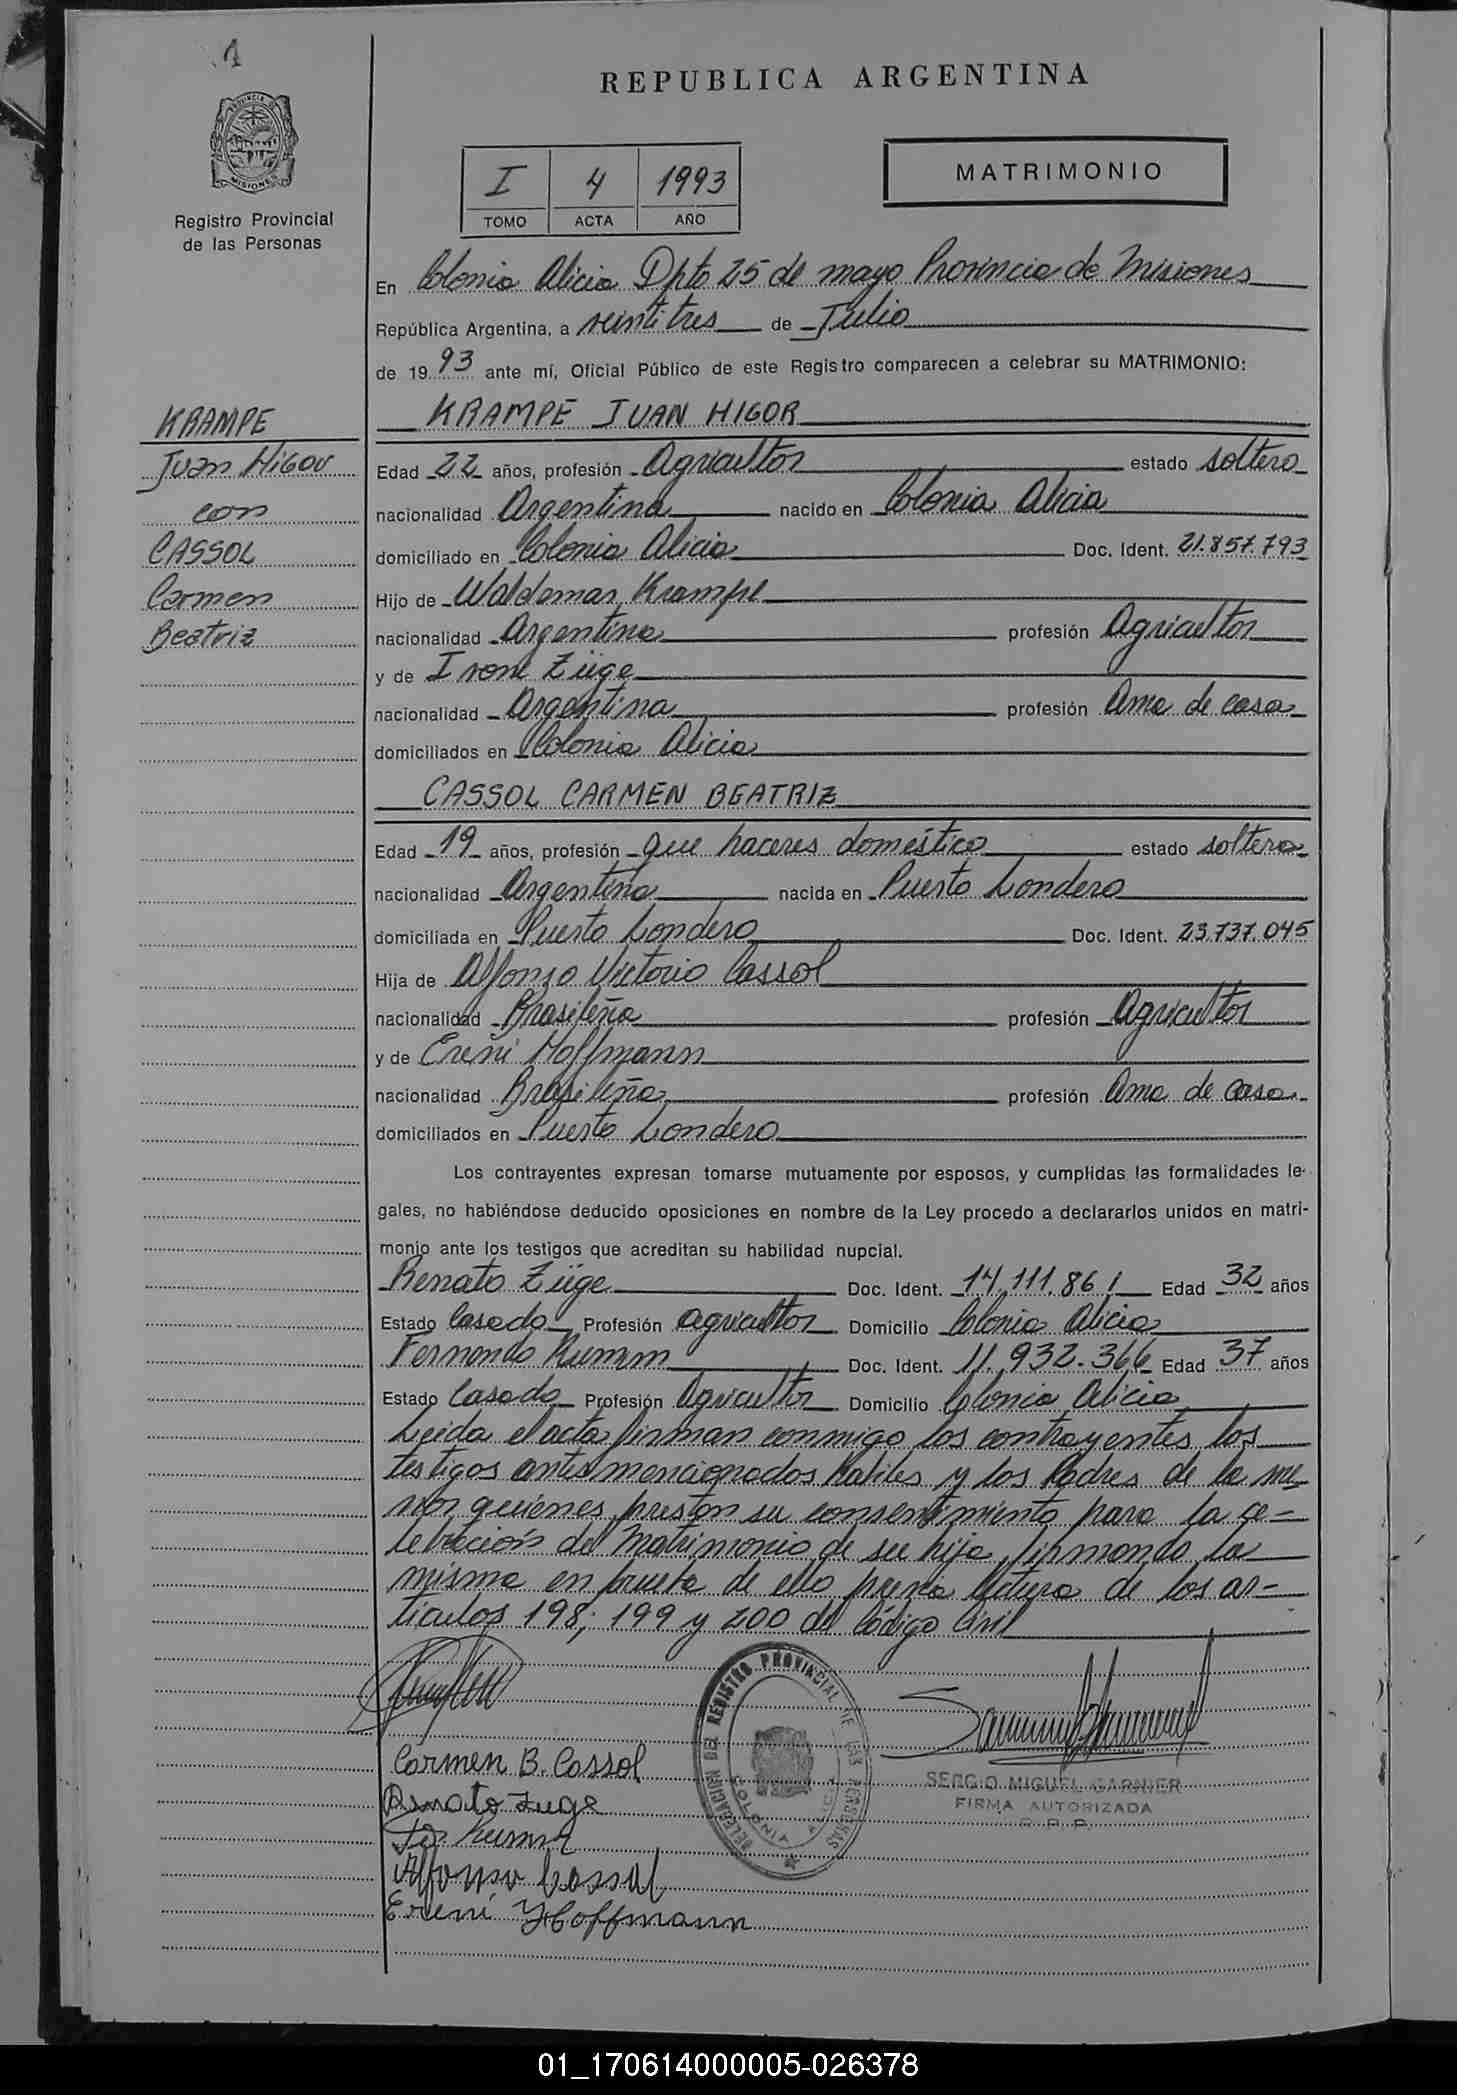 1
REPUBLICA ARGENTINA
PROVINCIA DE
MISIONES
Registro Provincial
de las Personas
I 4 1993
TOMO ACTA AÑO
MATRIMONIO
En Colonia Alicia Dpto 25 de mayo Provincia de Misiones
República Argentina, a veintitres de Julio
de 19 93 ante mí, Oficial Público de este Registro comparecen a celebrar su MATRIMONIO:
KRAMPE
Juan Higor
con
CASSOL
Carmen
Beatriz
KRAMPE JUAN HIGOR
Edad 22 años, profesión Agricultor estado soltero
nacionalidad Argentina nacido en Colonia Alicia
domiciliado en Colonia Alicia Doc. Ident. 21.857.793
Hijo de Waldemar Krampe
nacionalidad Argentina profesión Agricultor
y de Irone Züge
nacionalidad Argentina profesión Ama de casa
domiciliados en Colonia Alicia
CASSOL CARMEN BEATRIZ
Edad 19 años, profesión que haceres doméstico estado soltera
nacionalidad Argentina nacida en Puerto Londero
domiciliada en Puerto Londero Doc. Ident. 23.737.045
Hija de Alfonzo Victorio Cassol
nacionalidad Brasileña profesión Agricultor
y de Ereni Hoffmann
nacionalidad Brasileña profesión Ama de casa
domiciliados en Puerto Londero
Los contrayentes expresan tomarse mutuamente por esposos, y cumplidas las formalidades le-
gales, no habiéndose deducido oposiciones en nombre de la Ley procedo a declararlos unidos en matri-
monio ante los testigos que acreditan su habilidad nupcial.
Renato Züge Doc. Ident. 14.111.861 Edad 32 años
Estado Casado Profesión agricultor Domicilio Colonia Alicia
Fernando Kumm Doc. Ident. 11.932.366 Edad 37 años
Estado Casado Profesión Agricultor Domicilio Colonia Alicia
Leida el acta firman conmigo los contrayentes, los
testigos antes mencionados habiles y los Padres de la me
nor quienes prestan su consentimiento para la ce-
lebración del Matrimonio de su hija, firmando la
misma en prueba de ello previa lectura de los ar-
ticulos 198; 199 y 200 del Código Civil
Carmen B. Cassol
Renato Zuge
Fer Kumm
Alfonso Cassol
Ereni Hoffmann
DELEGACION DEL REGISTRO PROVINCIAL DE LAS PERSONAS
COLONIA ALICIA
SERGIO MIGUEL GARNIER
FIRMA AUTORIZADA
R. P. P.
01_170614000005-026378